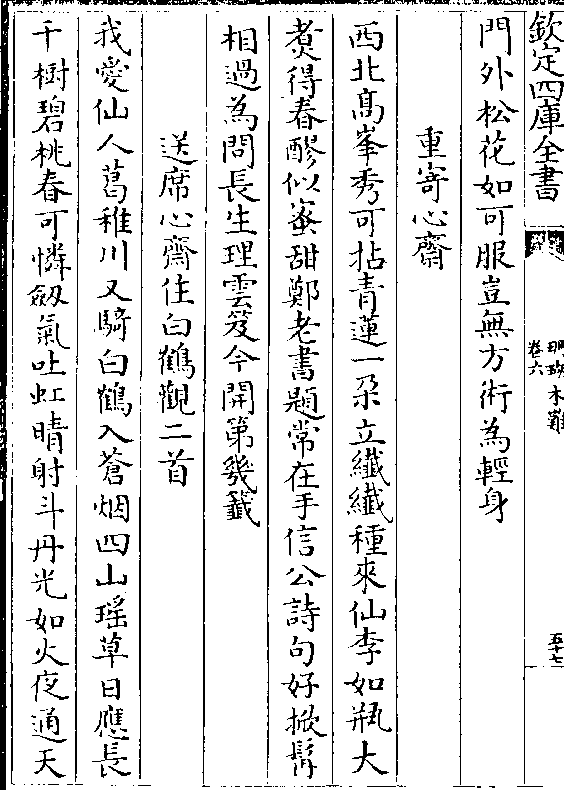 欽定四庫全書
珊瑚木難
卷六
五十七
門外松花如可服豈無方術為輕身
重寄心齋
西北高峯秀可拈青蓮一朶立纖纖種來仙李如瓶大
煑得春醪似蜜甜鄭老書題常在手信公詩句好掀髯
相過為問長生理雲笈今開第幾籤
送席心齋住白鶴觀二首
我愛仙人葛稚川又騎白鶴入蒼烟四山瑤草日應長
千樹碧桃春可憐劔氣吐虹晴射斗丹光如火夜通天